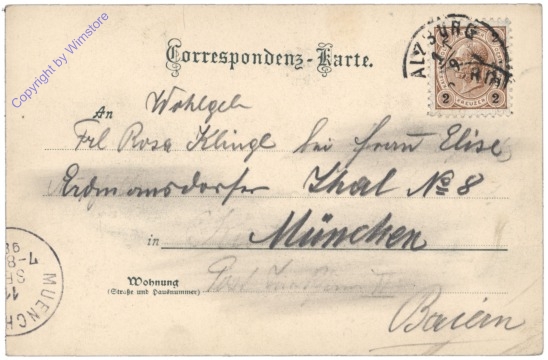 Copyright by Wimstore
Correspondenz-Karte.
ALZBURG
2 KREUZER 2
An Wohlgeb
Frl Rosa Klingl bei Frau Elise
Erdmansdorfer Thal No 8
in München
Wohnung
(Straße und Hausnummer)
Baiern
MUENCH
7-8